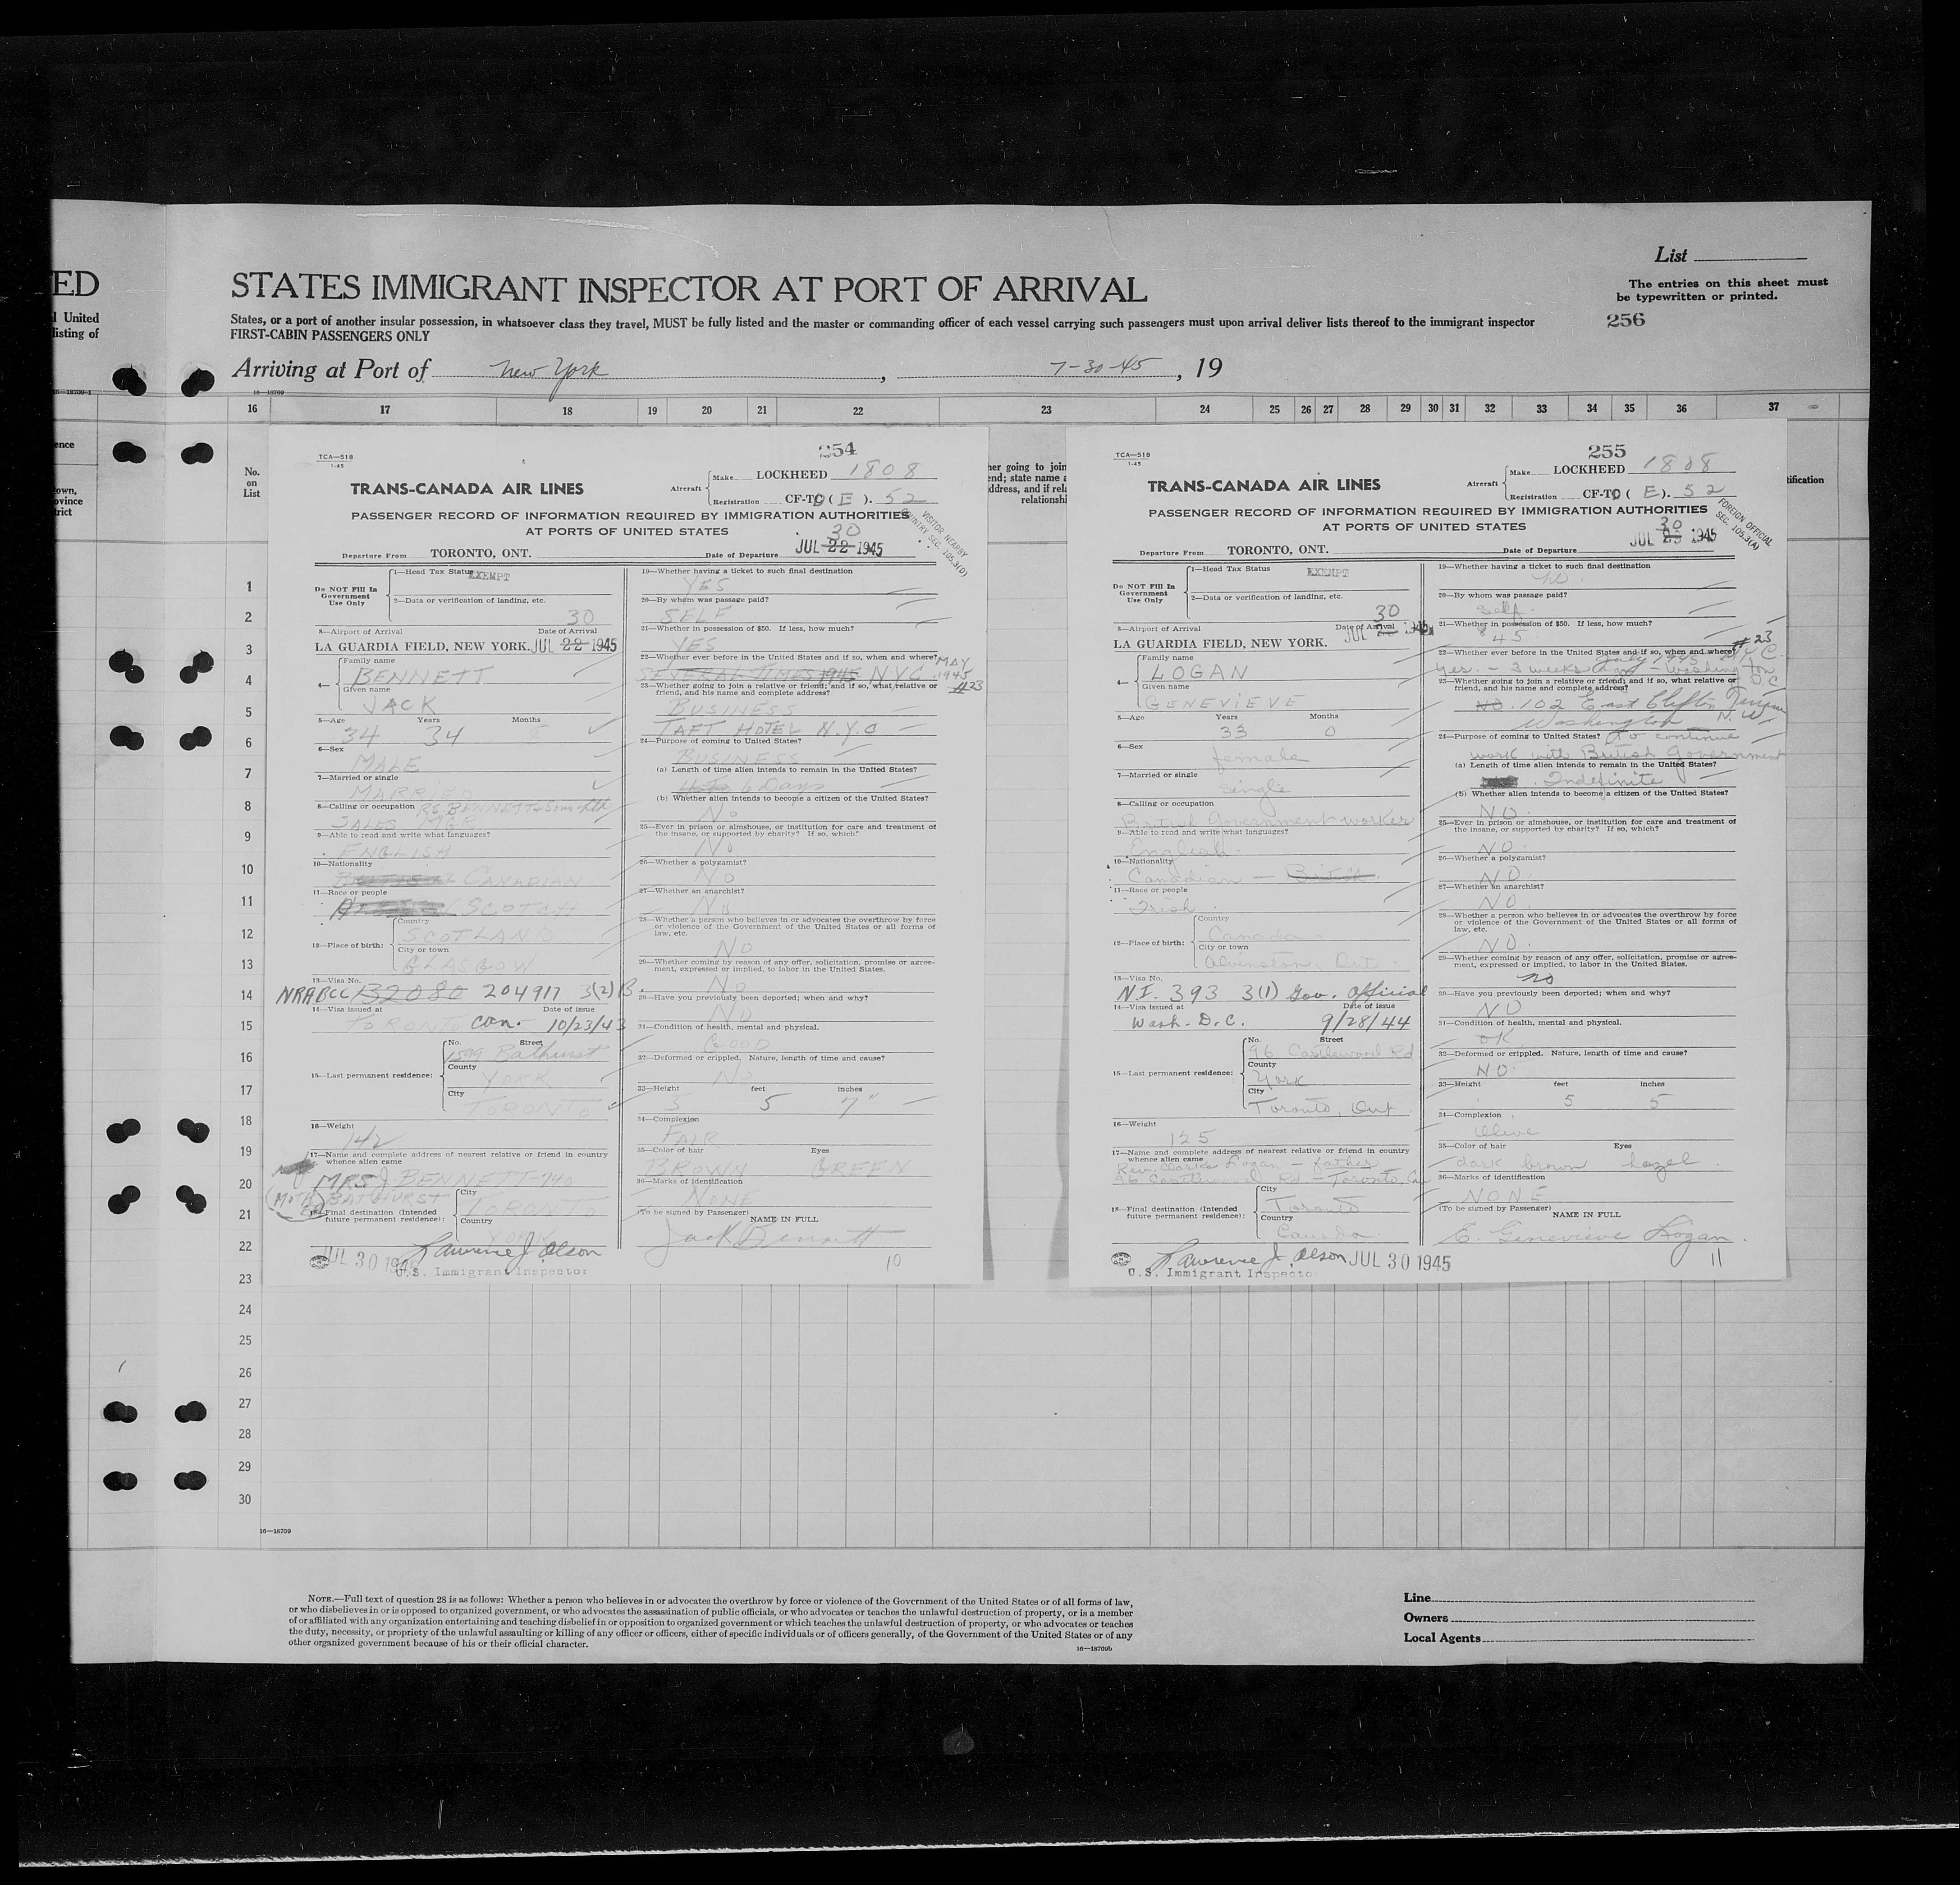 ED
l United
listing of
STATES IMMIGRANT INSPECTOR AT PORT OF ARRIVAL
List
The entries on this sheet must
be typewritten or printed.
256
States, or a port of another insular possession, in whatsoever class they travel, MUST be fully listed and the master or commanding officer of each vessel carrying such passengers must upon arrival deliver lists thereof to the immigrant inspector
FIRST-CABIN PASSENGERS ONLY
Arriving at Port of New York, 7-30-45, 19
16—18709
16 17 18 19 20 21 22 23 24 25 26 27 28 29 30 31 32 33 34 35 36 37
ence
own,
ovince
trict
No.
on
List
her going to join
end; state name a
ddress, and if rela
relationshi
tification
254
TCA—518
1-45
TRANS-CANADA AIR LINES
Aircraft
Make LOCKHEED 1808
Registration CF-TC ( E ). 52
PASSENGER RECORD OF INFORMATION REQUIRED BY IMMIGRATION AUTHORITIES
AT PORTS OF UNITED STATES
VISITOR NEARBY
COUNTRY SEC. 105.3(D)
30
Departure From TORONTO, ONT. Date of Departure JUL 22 1945
Do NOT Fill In
Government
Use Only
1—Head Tax Status EXEMPT
2—Data or verification of landing, etc.
30
3—Airport of Arrival Date of Arrival
LA GUARDIA FIELD, NEW YORK. JUL 22 1945
4—
Family name
BENNETT
Given name
JACK
5—Age Years Months
34 34
6—Sex
MALE
7—Married or single
MARRIED
8—Calling or occupation R.S. BENNETT & Sons Ltd
SALES MGR
9—Able to read and write what languages?
ENGLISH
10—Nationality
CANADIAN
11—Race or people
SCOTCH
12—Place of birth:
Country
SCOTLAND
City or town
GLASGOW
13—Visa No.
NRABCC 132080 204917 3(2) B.
14—Visa issued at Date of issue
TORONTO Can. 10/23/43
15—Last permanent residence:
No. Street
1599 Bathurst
County
YORK
City
TORONTO
16—Weight
142
17—Name and complete address of nearest relative or friend in country
whence alien came
MRS J BENNETT-740
BATHURST
18—Final destination (Intended
future permanent residence):
City
TORONTO
Country
YORK
JUL 30 194
Lawrence J. Olson
U.S. Immigrant Inspector
19—Whether having a ticket to such final destination
YES
20—By whom was passage paid?
SELF
21—Whether in possession of $50. If less, how much?
YES
22—Whether ever before in the United States and if so, when and where?
SEVERAL TIMES 1945 N.Y.C. MAY 1945
#23
23—Whether going to join a relative or friend; and if so, what relative or
friend, and his name and complete address?
BUSINESS
TAFT HOTEL N.Y.C
24—Purpose of coming to United States?
BUSINESS
(a) Length of time alien intends to remain in the United States?
6 Days
(b) Whether alien intends to become a citizen of the United States?
No
25—Ever in prison or almshouse, or institution for care and treatment of
the insane, or supported by charity? If so, which
No
26—Whether a polygamist?
No
27—Whether an anarchist?
No
28—Whether a person who believes in or advocates the overthrow by force
or violence of the Government of the United States or all forms of
law, etc.
No
29—Whether coming by reason of any offer, solicitation, promise or agree-
ment, expressed or implied, to labor in the United States.
No
30—Have you previously been deported; when and why?
No
31—Condition of health, mental and physical.
GOOD
32—Deformed or crippled. Nature, length of time and cause?
No
33—Height feet inches
5 5 7"
34—Complexion
FAIR
35—Color of hair Eyes
BROWN GREEN
36—Marks of identification
NONE
(To be signed by Passenger)
NAME IN FULL
Jack Bennett
10
255
TCA—518
1-45
TRANS-CANADA AIR LINES
Aircraft
Make LOCKHEED 1808
Registration CF-TC ( E ). 52
PASSENGER RECORD OF INFORMATION REQUIRED BY IMMIGRATION AUTHORITIES
AT PORTS OF UNITED STATES
FOREIGN OFFICIAL
SEC. 105.3(A)
30
Departure From TORONTO, ONT. Date of Departure JUL 1945
Do NOT Fill In
Government
Use Only
1—Head Tax Status EXEMPT
2—Data or verification of landing, etc.
30
3—Airport of Arrival Date of Arrival
LA GUARDIA FIELD, NEW YORK. JUL 1945
4—
Family name
LOGAN
Given name
GENEVIEVE
5—Age Years Months
33 0
6—Sex
female
7—Married or single
single
8—Calling or occupation
British Government worker
9—Able to read and write what languages?
English
10—Nationality
Canadian — British
11—Race or people
Irish
12—Place of birth:
Country
Canada
City or town
Alvinston, Ont
13—Visa No.
N.I. 393 3(1) Gov. Official
14—Visa issued at Date of issue
Wash. D.C. 9/28/44
15—Last permanent residence:
No. Street
96 Castlewood Rd
County
York
City
Toronto, Ont
16—Weight
125
17—Name and complete address of nearest relative or friend in country
whence alien came
Rev. Clarke Logan — father
96 Castlewood Rd — Toronto, Can
18—Final destination (Intended
future permanent residence):
City
Toronto
Country
Canada
Lawrence J. Olson JUL 30 1945
U.S. Immigrant Inspecto
19—Whether having a ticket to such final destination
no
20—By whom was passage paid?
self
21—Whether in possession of $50. If less, how much?
$45
#23
22—Whether ever before in the United States and if so, when and where?
July 1945
yes. - 3 weeks - Washington D.C
23—Whether going to join a relative or friend; and if so, what relative or
friend, and his name and complete address?
NO. 102 East Clifton Terrace
Washington N.W.
24—Purpose of coming to United States? to continue
work with British Government
(a) Length of time alien intends to remain in the United States?
Indefinite
(b) Whether alien intends to become a citizen of the United States?
NO.
25—Ever in prison or almshouse, or institution for care and treatment of
the insane, or supported by charity? If so, which?
NO.
26—Whether a polygamist?
NO.
27—Whether an anarchist?
NO.
28—Whether a person who believes in or advocates the overthrow by force
or violence of the Government of the United States or all forms of
law, etc.
NO.
29—Whether coming by reason of any offer, solicitation, promise or agree-
ment, expressed or implied, to labor in the United States.
no
30—Have you previously been deported; when and why?
NO
31—Condition of health, mental and physical.
OK
32—Deformed or crippled. Nature, length of time and cause?
NO.
33—Height feet inches
5 5
34—Complexion
Olive
35—Color of hair Eyes
dark brown hazel
36—Marks of identification
NONE
(To be signed by Passenger)
NAME IN FULL
E. Genevieve Logan
11
1
2
3
4
5
6
7
8
9
10
11
12
13
14
15
16
17
18
19
20
21
22
23
24
25
26
27
28
29
30
16—18709
NOTE.—Full text of question 28 is as follows: Whether a person who believes in or advocates the overthrow by force or violence of the Government of the United States or of all forms of law,
or who disbelieves in or is opposed to organized government, or who advocates the assassination of public officials, or who advocates or teaches the unlawful destruction of property, or is a member
of or affiliated with any organization entertaining and teaching disbelief in or opposition to organized government or which teaches the unlawful destruction of property, or who advocates or teaches
the duty, necessity, or propriety of the unlawful assaulting or killing of any officer or officers, either of specific individuals or of officers generally, of the Government of the United States or of any
other organized government because of his or their official character.
16—18709b
Line
Owners
Local Agents